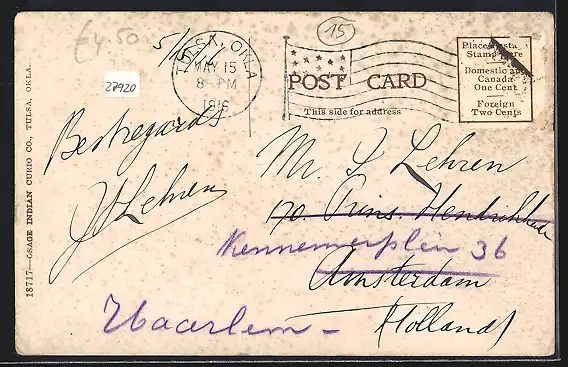 £4.50
15
5/
27920
TULSA, OKLA
MAY 15
8 - PM
1916
POST CARD
This side for address
Place Postage
Stamp Here
Domestic and
Canada
One Cent
Foreign
Two Cents
18717—OSAGE INDIAN CURIO CO., TULSA, OKLA.
Best regards
J Lehren
Mr. J Lehren
170 Prins. Hendrikkade
Kennemerplein 36
Amsterdam
Haarlem -
(Holland)